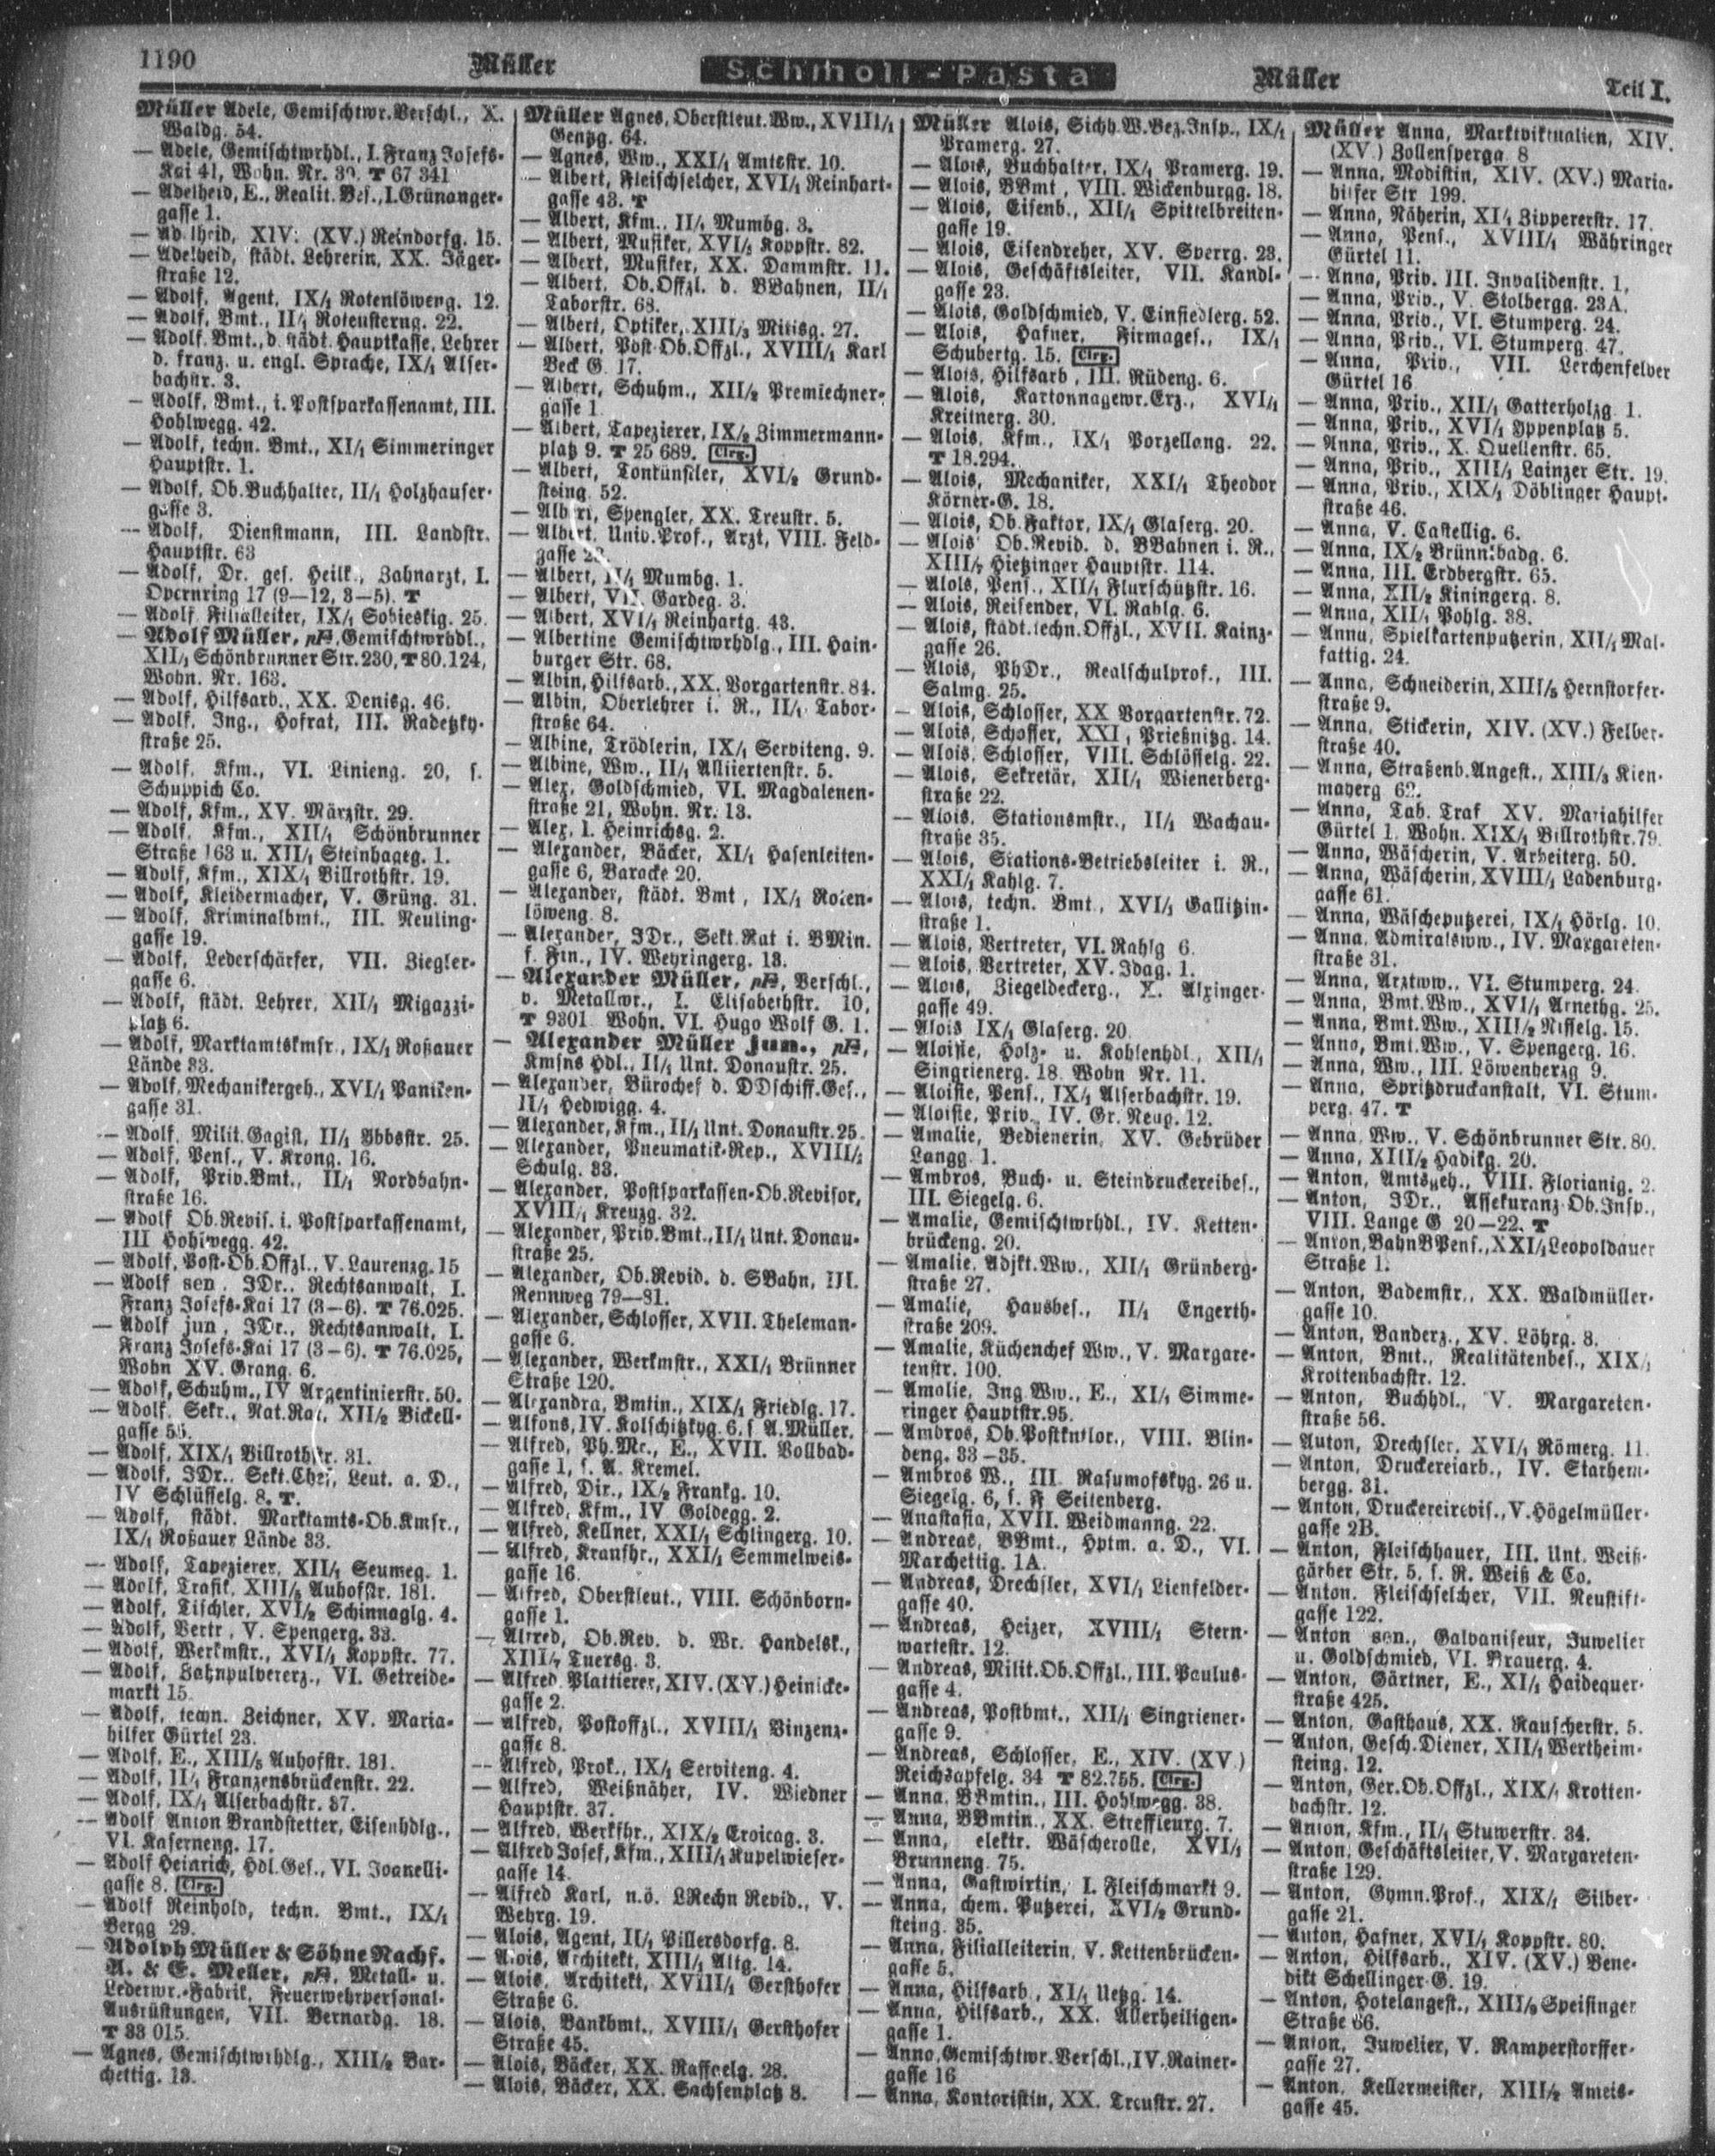 1190
Müller
Schmoll-Pasta
Müller
Teil I.
Müller Adele, Gemischtwr.Verschl., X.
Waldg. 54.
— Adele, Gemischtwrhdl., I. Franz Josefs-
Kai 41, Wohn. Nr. 39. T 67 341
— Adelheid, E., Realit.Bes., I. Grünanger-
gasse 1.
— Adelheid, XIV. (XV.) Reindorfg. 15.
— Adelheid, städt. Lehrerin, XX. Jäger-
straße 12.
— Adolf, Agent, IX/1 Rotenlöweng. 12.
— Adolf, Bmt., II/1 Rotensterng. 22.
— Adolf, Bmt., d. städt. Hauptkasse, Lehrer
d. franz. u. engl. Sprache, IX/1 Alser-
bachstr. 3.
— Adolf, Bmt., i. Postsparkassenamt, III.
Hohlwegg. 42.
— Adolf, techn. Bmt., XI/1 Simmeringer
Hauptstr. 1.
— Adolf, Ob.Buchhalter, II/1 Holzhauser-
gasse 3.
— Adolf, Dienstmann, III. Landstr.
Hauptstr. 63
— Adolf, Dr. ges. Heilk., Zahnarzt, I.
Opernring 17 (9—12, 3—5). T
— Adolf, Filialleiter, IX/1 Sobieskig. 25.
— Adolf Müller, Gemischtwrhdl.,
XII/1 Schönbrunner Str. 230, T 80.124,
Wohn. Nr. 163.
— Adolf, Hilfsarb., XX. Denisg. 46.
— Adolf, Ing., Hofrat, III. Radetzky-
straße 25.
— Adolf, Kfm., VI. Linieng. 20, s.
Schuppich Co.
— Adolf, Kfm., XV. Märzstr. 29.
— Adolf, Kfm., XII/1 Schönbrunner
Straße 163 u. XII/1 Steinhageg. 1.
— Adolf, Kfm., XIX/1 Billrothstr. 19.
— Adolf, Kleidermacher, V. Grüng. 31.
— Adolf, Kriminalbmt., III. Neuling-
gasse 19.
— Adolf, Lederschärfer, VII. Ziegler-
gasse 6.
— Adolf, städt. Lehrer, XII/1 Migazzi-
platz 6.
— Adolf, Marktamtskmsr., IX/1 Roßauer
Lände 33.
— Adolf, Mechanikergeh., XVI/1 Paniken-
gasse 31.
— Adolf, Milit.Gagist, II/1 Ybbsstr. 25.
— Adolf, Pens., V. Krong. 16.
— Adolf, Priv.Bmt., II/1 Nordbahn-
straße 16.
— Adolf Ob.Revis. i. Postsparkassenamt,
III Hohlwegg. 42.
— Adolf, Post-Ob.Offzl., V. Laurenzg. 15
— Adolf sen., JDr., Rechtsanwalt, I.
Franz Josefs-Kai 17 (3—6). T 76.025.
— Adolf jun., JDr., Rechtsanwalt, I.
Franz Josefs-Kai 17 (3—6). T 76.025,
Wohn XV. Grang. 6.
— Adolf, Schuhm., IV Argentinierstr. 50.
— Adolf, Sekr., Nat.Rat, XII/2 Bickell-
gasse 55.
— Adolf, XIX/1 Billrothstr. 31.
— Adolf, JDr., Sekt.Chef, Leut. a. D.,
IV Schlüsselg. 8. T.
— Adolf, städt. Marktamts-Ob.Kmsr.,
IX/1 Roßauer Lände 33.
— Adolf, Tapezierer, XII/1 Seumeg. 1.
— Adolf, Trafik, XIII/5 Auhofstr. 181.
— Adolf, Tischler, XVI/2 Schinnaglg. 4.
— Adolf, Vertr., V. Spengerg. 33.
— Adolf, Werkmstr., XVI/1 Koppstr. 77.
— Adolf, Zahnpulvererz., VI. Getreide-
markt 15
— Adolf, techn. Zeichner, XV. Maria-
hilfer Gürtel 23.
— Adolf, E., XIII/5 Auhofstr. 181.
— Adolf, II/1 Franzensbrückenstr. 22.
— Adolf, IX/1 Alserbachstr. 37.
— Adolf Anton Brandstetter, Eisenhdlg.,
VI. Kaserneng. 17.
— Adolf Heinrich, Hdl.Ges., VI. Joanelli-
gasse 8. Clrg.
— Adolf Reinhold, techn. Bmt., IX/1
Bergg 29.
— Adolph Müller & Söhne Nachf.
A. & E. Meller, Metall- u.
Lederwr.-Fabrik, Feuerwehrpersonal-
Ausrüstungen, VII. Bernardg. 18.
T 33 015.
— Agnes, Gemischtwrhdlg., XIII/2 Bar-
chettig. 13.
Müller Agnes, Oberstleut.Ww., XVIII/1
Gentzg. 64.
— Agnes, Ww., XXI/1 Amtsstr. 10.
— Albert, Fleischselcher, XVI/1 Reinhart-
gasse 43. T
— Albert, Kfm., II/1 Mumbg. 3.
— Albert, Musiker, XVI/1 Koppstr. 82.
— Albert, Musiker, XX. Dammstr. 11.
— Albert, Ob.Offzl. d. BBahnen, II/1
Taborstr. 68.
— Albert, Optiker, XIII/3 Mitisg. 27.
— Albert, Post-Ob.Offzl., XVIII/1 Karl
Beck G. 17.
— Albert, Schuhm., XII/2 Premlechner-
gasse 1
— Albert, Tapezierer, IX/2 Zimmermann-
platz 9. T 25 689. Clrg.
— Albert, Tonkünstler, XVI/2 Grund-
steing. 52.
— Albert, Spengler, XX. Treustr. 5.
— Albert, Univ.Prof., Arzt, VIII. Feld-
gasse
— Albert, II/1 Mumbg. 1.
— Albert, VII. Gardeg. 3.
— Albert, XVI/1 Reinhartg. 43.
— Albertine Gemischtwrhdlg., III. Hain-
burger Str. 68.
— Albin, Hilfsarb., XX. Vorgartenstr. 84.
— Albin, Oberlehrer i. R., II/1 Tabor-
straße 64.
— Albine, Trödlerin, IX/1 Serviteng. 9.
— Albine, Ww., II/1 Alliiertenstr. 5.
— Alex, Goldschmied, VI. Magdalenen-
straße 21, Wohn. Nr. 13.
— Alex, I. Heinrichsg. 2.
— Alexander, Bäcker, XI/1 Hasenleiten-
gasse 6, Baracke 20.
— Alexander, städt. Bmt., IX/1 Roten-
löweng. 8.
— Alexander, JDr., Sekt.Rat i. BMin.
f. Fin., IV. Weyringerg. 13.
— Alexander Müller, Verschl.,
v. Metallwr., I. Elisabethstr. 10,
T 9301 Wohn. VI. Hugo Wolf G. 1.
— Alexander Müller jun.,
Kmsns Hdl., II/1 Unt. Donaustr. 25.
— Alexander, Bürochef d. DDschiff.Ges.,
II/1 Hedwigg. 4.
— Alexander, Kfm., II/1 Unt. Donaustr. 25.
— Alexander, Pneumatik-Rep., XVIII/1
Schulg. 33.
— Alexander, Postsparkassen-Ob.Revisor,
XVIII/1 Kreuzg. 32.
— Alexander, Priv.Bmt., II/1 Unt. Donau-
straße 25.
— Alexander, Ob.Revid. d. SBahn, III.
Rennweg 79—81.
— Alexander, Schlosser, XVII. Theleman-
gasse 6.
— Alexander, Werkmstr., XXI/1 Brünner
Straße 120.
— Alexandra, Bmtin., XIX/1 Friedlg. 17.
— Alfons, IV. Kolschitzkyg. 6, s A. Müller.
— Alfred, Ph.Mr., E., XVII. Vollbad-
gasse 1, s. A. Kremel.
— Alfred, Dir., IX/2 Frankg. 10.
— Alfred, Kfm., IV Goldegg. 2.
— Alfred, Kellner, XXI/1 Schlingerg. 10.
— Alfred, Kranfhr., XXI/1 Semmelweis-
gasse 16.
— Alfred, Oberstleut., VIII. Schönborn-
gasse 1.
— Alfred, Ob.Rev. d. Wr. Handelsk.,
XIII/7 Tuersg. 3.
— Alfred, Plattierer, XIV. (XV.) Heinicke-
gasse 2.
— Alfred, Postoffzl., XVIII/1 Vinzenz-
gasse 8.
— Alfred, Prok., IX/1 Serviteng. 4.
— Alfred, Weißnäher, IV. Wiedner
Hauptstr. 37.
— Alfred, Werkfhr., XIX/2 Eroicag. 3.
— Alfred Josef, Kfm., XIII/1 Kupelwieser-
gasse 14.
— Alfred Karl, n.ö. LRechn Revid., V.
Wehrg. 19.
— Alois, Agent, II/1 Pillersdorfg. 8.
— Alois, Architekt, XIII/1 Altg. 14.
— Alois, Architekt, XVIII/1 Gersthofer
Straße 6.
— Alois, Bankbmt., XVIII/1 Gersthofer
Straße 45.
— Alois, Bäcker, XX. Raffaelg. 28.
— Alois, Bäcker, XX. Sachsenplatz 8.
Müller Alois, Sichh.W.Bez.Insp., IX/1
Pramerg. 27.
— Alois, Buchhalter, IX/1 Pramerg. 19.
— Alois, BBmt., VIII. Wickenburgg. 18.
— Alois, Eisenb., XII/1 Spittelbreiten-
gasse 19.
— Alois, Eisendreher, XV. Sperrg. 23.
— Alois, Geschäftsleiter, VII. Kandl-
gasse 23.
— Alois, Goldschmied, V. Einsiedlerg. 52.
— Alois, Hafner, Firmages., IX/1
Schubertg. 15. Clrg.
— Alois, Hilfsarb., III. Rüdeng. 6.
— Alois, Kartonnagewr.Erz., XVI/1
Kreitnerg. 30.
— Alois, Kfm., IX/1 Porzellang. 22.
T 18.294.
— Alois, Mechaniker, XXI/1 Theodor
Körner-G. 18.
— Alois, Ob.Faktor, IX/1 Glaserg. 20.
— Alois Ob.Revid. d. BBahnen i. R.,
XIII/7 Hietzinger Hauptstr. 114.
— Alois, Pens., XII/1 Flurschützstr. 16.
— Alois, Reisender, VI. Rahlg. 6.
— Alois, städt.techn.Offzl., XVII. Kainz-
gasse 26.
— Alois, PhDr., Realschulprof., III.
Salmg. 25.
— Alois, Schlosser, XX Vorgartenstr. 72.
— Alois, Schosser, XXI, Prießnitzg. 14.
— Alois, Schlosser, VIII. Schlösselg. 22.
— Alois, Sekretär, XII/1 Wienerberg-
straße 22.
— Alois, Stationsmstr., II/1 Wachau-
straße 35.
— Alois, Stations-Betriebsleiter i. R.,
XXI/1 Kahlg. 7.
— Alois, techn. Bmt., XVI/1 Gallitzin-
straße 1.
— Alois, Vertreter, VI. Rahlg 6.
— Alois, Vertreter, XV. Idag. 1.
— Alois, Ziegeldeckerg., X. Alxinger-
gasse 49.
— Alois IX/1 Glaserg. 20.
— Aloisie, Holz- u. Kohlenhdl., XII/1
Singrienerg. 18. Wohn Nr. 11.
— Aloisie, Pens., IX/1 Alserbachstr. 19.
— Aloisie, Priv., IV. Gr. Neug. 12.
— Amalie, Bedienerin, XV. Gebrüder
Langg. 1.
— Ambros, Buch- u. Steindruckereibes.,
III. Siegelg. 6.
— Amalie, Gemischtwrhdl., IV. Ketten-
brückeng. 20.
— Amalie, Adjkt.Ww., XII/1 Grünberg-
straße 27.
— Amalie, Hausbes., II/1 Engerth-
straße 209.
— Amalie, Küchenchef Ww., V. Margare-
tenstr. 100.
— Amalie, Ing.Ww., E., XI/1 Simme-
ringer Hauptstr. 95.
— Ambros, Ob.Postkntlor., VIII. Blin-
deng. 33—35.
— Ambros W., III. Rasumofskyg. 26 u.
Siegelg. 6, s. F Seitenberg.
— Anastasia, XVII. Weidmanng. 22.
— Andreas, BBmt., Hptm. a. D., VI.
Marchettig. 1A.
— Andreas, Drechsler, XVI/1 Lienfelder-
gasse 40.
— Andreas, Heizer, XVIII/1 Stern-
wartestr. 12.
— Andreas, Milit.Ob.Offzl., III. Paulus-
gasse 4.
— Andreas, Postbmt., XII/1 Singriener-
gasse 9.
— Andreas, Schlosser, E., XIV. (XV.)
Reichsapfelg. 34 T 82.755. Clrg.
— Anna, BBmtin., III. Hohlwegg. 38.
— Anna, BBmtin., XX. Streffleurg. 7.
— Anna, elektr. Wäscherolle, XVI/1
Brunneng. 75.
— Anna, Gastwirtin, I. Fleischmarkt 9.
— Anna, chem. Putzerei, XVI/2 Grund-
steing. 35.
— Anna, Filialleiterin, V. Kettenbrücken-
gasse 5.
— Anna, Hilfsarb., XI/1 Uetzg. 14.
— Anna, Hilfsarb., XX. Allerheiligen-
gasse 1.
— Anna, Gemischtwr.Verschl., IV. Rainer-
gasse 16
— Anna, Kontoristin, XX. Treustr. 27.
Müller Anna, Marktviktualien, XIV.
(XV.) Zollernsperg. 8
— Anna, Modistin, XIV. (XV.) Maria-
hilfer Str 199.
— Anna, Näherin, XI/1 Zippererstr. 17.
— Anna, Pens., XVIII/1 Währinger
Gürtel 11.
— Anna, Priv. III. Invalidenstr. 1.
— Anna, Priv., V. Stolbergg. 23A.
— Anna, Priv., VI. Stumperg. 24.
— Anna, Priv., VI. Stumperg. 47.
— Anna, Priv., VII. Lerchenfelder
Gürtel 16
— Anna, Priv., XII/1 Gatterholzg. 1.
— Anna, Priv., XVI/1 Yppenplatz 5.
— Anna, Priv., X. Quellenstr. 65.
— Anna, Priv., XIII/1 Lainzer Str. 19.
— Anna, Priv., XIX/1 Döblinger Haupt-
straße 46.
— Anna, V. Castellig. 6.
— Anna, IX/2 Brünnlbadg. 6.
— Anna, III. Erdbergstr. 65.
— Anna, XII/2 Kiningerg. 8.
— Anna, XII/1 Pohlg. 38.
— Anna, Spielkartenputzerin, XII/1 Mal-
fattig. 24.
— Anna, Schneiderin, XIII/5 Hernstorfer-
straße 9.
— Anna, Stickerin, XIV. (XV.) Felber-
straße 40.
— Anna, Straßenb.Angest., XIII/3 Kien-
mayerg 62.
— Anna, Tab. Traf XV. Mariahilfer
Gürtel 1. Wohn. XIX/1 Billrothstr. 79.
— Anna, Wäscherin, V. Arbeiterg. 50.
— Anna, Wäscherin, XVIII/1 Ladenburg-
gasse 61.
— Anna, Wäscheputzerei, IX/1 Hörlg. 10.
— Anna, Admiralsww., IV. Margareten-
straße 31.
— Anna, Arztww., VI. Stumperg. 24.
— Anna, Bmt.Ww., XVI/1 Arnethg. 25.
— Anna, Bmt.Ww., XIII/2 Nisselg. 15.
— Anna, Bmt.Ww., V. Spengerg. 16.
— Anna, Ww., III. Löwenherzg 9.
— Anna, Spritzdruckanstalt, VI. Stum-
perg. 47. T
— Anna, Ww., V. Schönbrunner Str. 80.
— Anna, XIII/2 Hadikg. 20.
— Anton, Amtsgeh., VIII. Florianig. 2.
— Anton, JDr., Assekuranz-Ob.Insp.,
VIII. Lange G 20—22. T
— Anton, BahnBPens., XXI/1 Leopoldauer
Straße 1.
— Anton, Bademstr., XX. Waldmüller-
gasse 10.
— Anton, Banderz., XV. Löhrg. 8.
— Anton, Bmt., Realitätenbes., XIX/1
Krottenbachstr. 12.
— Anton, Buchhdl., V. Margareten-
straße 56.
— Anton, Drechsler, XVI/1 Römerg. 11.
— Anton, Druckereiarb., IV. Starhem-
bergg. 31.
— Anton, Druckereirevis., V. Högelmüller-
gasse 2B.
— Anton, Fleischhauer, III. Unt. Weiß-
gärber Str. 5, s. R. Weiß & Co.
— Anton, Fleischselcher, VII. Neustift-
gasse 122.
— Anton sen., Galvaniseur, Juwelier
u. Goldschmied, VI. Brauerg. 4.
— Anton, Gärtner, E., XI/1 Haidequer-
straße 425.
— Anton, Gasthaus, XX. Rauscherstr. 5.
— Anton, Gesch.Diener, XII/1 Wertheim-
steing. 12.
— Anton, Ger.Ob.Offzl., XIX/1 Krotten-
bachstr. 12.
— Anton, Kfm., II/1 Stuwerstr. 34.
— Anton, Geschäftsleiter, V. Margareten-
straße 129.
— Anton, Gymn.Prof., XIX/1 Silber-
gasse 21.
— Anton, Hafner, XVI/1 Koppstr. 80.
— Anton, Hilfsarb., XIV. (XV.) Bene-
dikt Schellinger-G. 19.
— Anton, Hotelangest., XIII/9 Speisinger
Straße 66.
— Anton, Juwelier, V. Ramperstorffer-
gasse 27.
— Anton, Kellermeister, XIII/2 Ameis-
gasse 45.